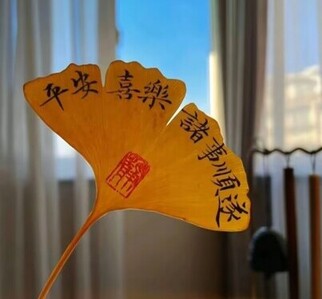 平安
喜樂
諸事順遂